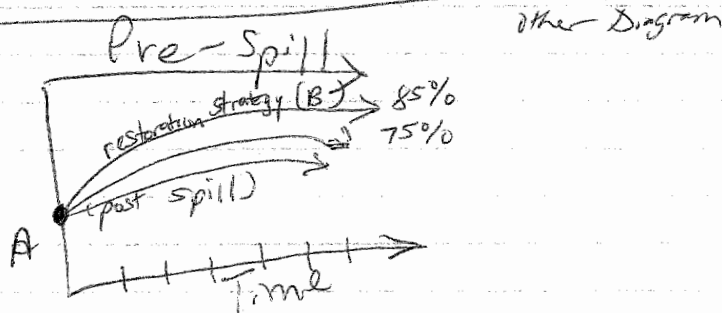 other Diagram
Pre-Spill
restoration strategy (B)
85%
75%
(post spill)
A
Time